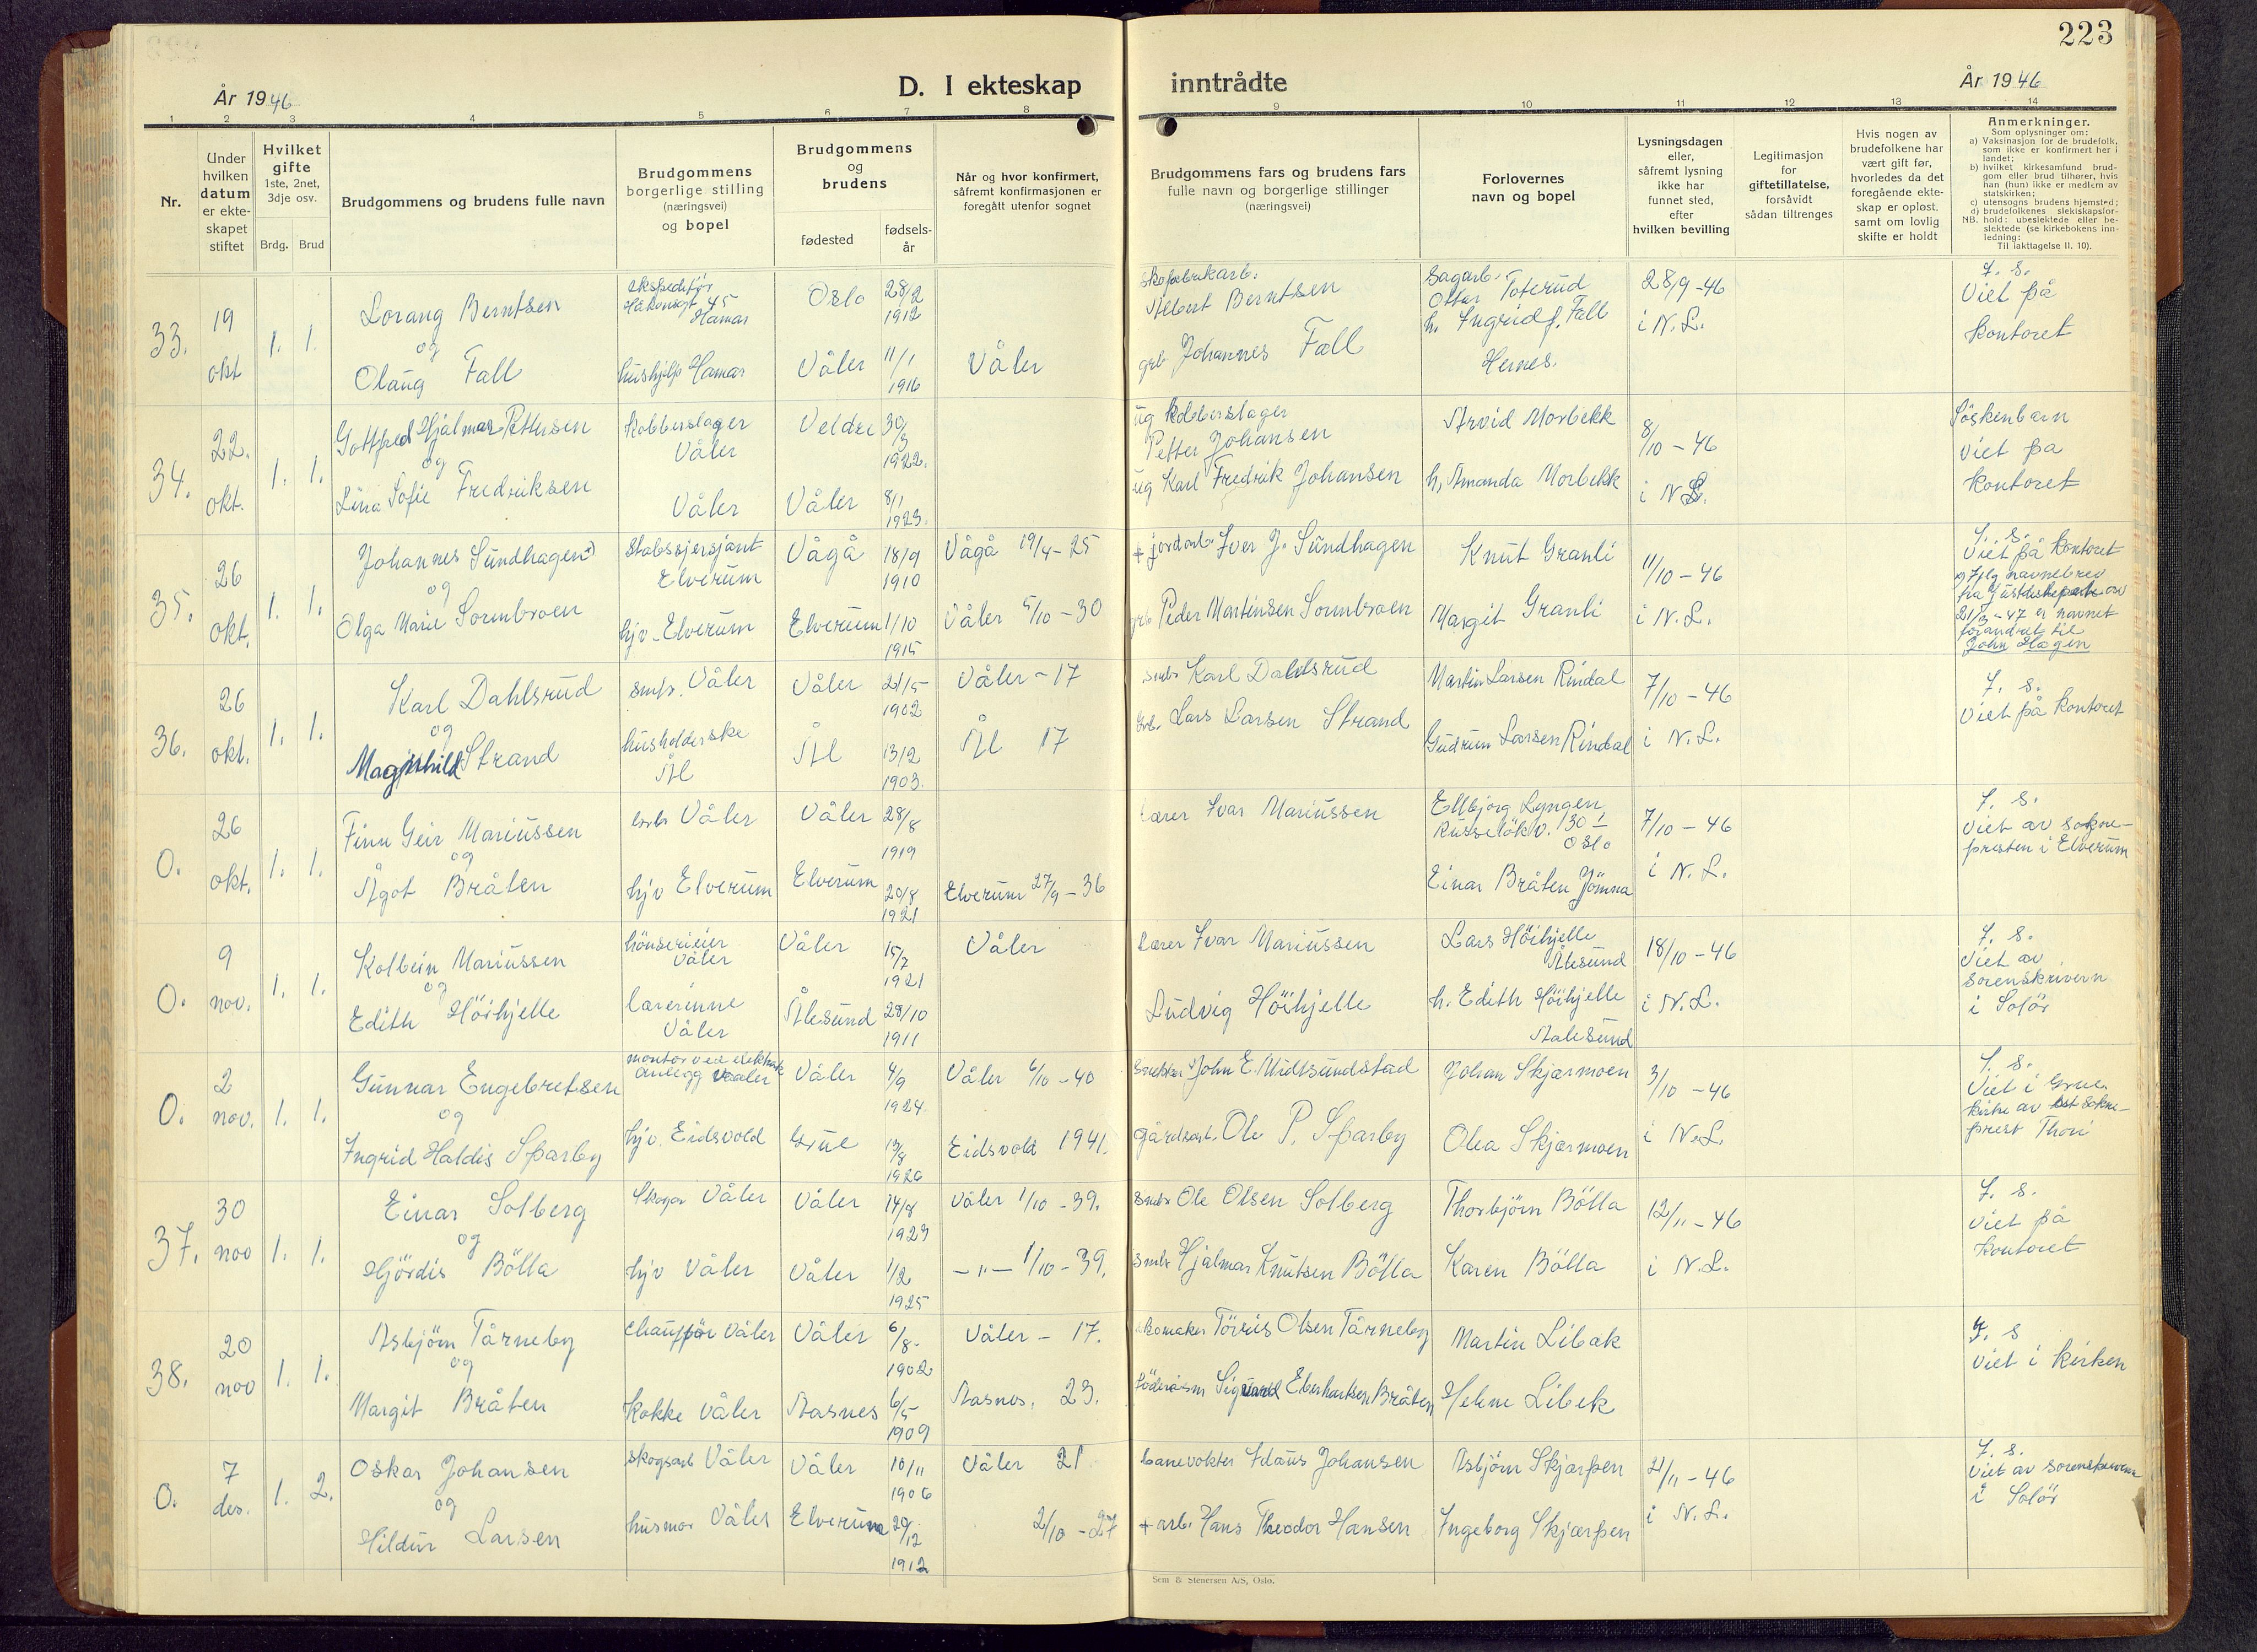 223
År 1946
D. I ekteskap
inntrådte
År 1946
1 2 3 4 5 6 7 8 9 10 11 12 13 14
Nr.
Under
hvilken
datum
er ekte-
skapet
stiftet
Hvilket
gifte
1ste, 2net,
3dje osv.
Brdg. Brud
Brudgommens og brudens fulle navn
Brudgommens
borgerlige stilling
(næringsvei)
og bopel
Brudgommens
og
brudens
fødested
fødsels-
år
Når og hvor konfirmert,
såfremt konfirmasjonen er
foregått utenfor sognet
Brudgommens fars og brudens fars
fulle navn og borgerlige stillinger
(næringsvei)
Forlovernes
navn og bopel
Lysningsdagen
eller,
såfremt lysning
ikke har
funnet sted,
efter
hvilken bevilling
Legitimasjon
for
giftetillatelse,
forsåvidt
sådan tiltrenges
Hvis nogen av
brudefolkene har
vært gift før,
hvorledes da det
foregående ekte-
skap er opløst,
samt om lovlig
skifte er holdt
Anmerkninger.
Som oplysninger om:
a) Vaksinasjon for de brudefolk,
som ikke er konfirmert her i
landet;
b) hvilket kirkesamfund brud-
gom eller brud tilhører, hvis
han (hun) ikke er medlem av
statskirken;
c) utensogns brudens hjemsted;
d) brudefolkenes slektskapsfor-
NB. hold: ubeslektede eller be-
slektede (se kirkebokens inn-
ledning:
Til iakttagelse II. 10).
33.
19
okt
1. 1.
Lorang Berntsen
og
Olaug Fall
ekspeditør
Håkonsgt 45
Hamar
hushjelp Hamar
Oslo
28/2
1912
Våler
11/1
1916
Våler
skofabrikarb.
Albert Berntsen
grb Johannes Fall
Sagarb.
Ottar Toterud
h. Ingrid f. Fall
Hernes.
28/9-46
i N. L.
f. s.
Viet på
kontoret
34.
22.
okt.
1. 1.
Gottfred Hjalmar Pettersen
og
Lina Sofie Fredriksen
Kobberslager
Våler
Våler
Veldre
30/3
1922.
Våler
8/1
1923.
ug Kobberslager
Petter Johansen
ug Karl Fredrik Johansen
Arvid Morbekk
h, Amanda Morbekk
8/10-46
i N.L.
Söskenbarn
viet pa
kontoret
35.
26
okt.
1. 1.
Johannes Sundhagen +)
og
Olga Marie Sormbroen
Stabssjersjant
Elverum
hjv-Elverum
Vågå
18/9
1910
Elverum
1/10
1915
Vågå 19/4-25
Våler 5/10-30
+ jordarb. Iver J. Sundhagen
grb Peder Martinsen Sormbroen
Knut Granli
Margit Granli
11/10-46
i N. L.
f. s.
Viet på kontoret
navnebrev
21/3-47 er navnet
forandret til
John Hagen
36.
26
okt.
1. 1.
Karl Dahlsrud
og
Magnhild Strand
smbr. Våler
husholderske
Ål
Våler
21/5
1902
Ål
13/2
1903.
Våler-17
Ål 17
smbr Karl Dahlsrud
Grb. Lars Larsen Strand
Martin Larsen Rindal
Gudrun Larsen Rindal
7/10-46
i N.L.
f. s.
viet på kontoret
0.
26
okt.
1. 1.
Finn Geir Mariussen
og
Ågot Bråten
Våler
hjv Elverum
Våler
28/8
1919
Elverum
20/8
1921
Elverum 27/9-36
lærer Ivar Mariussen
Ellbjørg Lyngen
Russeløkv. 130 I
Oslo
Einar Bråten Jömna
7/10-46
i N. L.
f. s.
viet av sokne-
presten i Elverum
0.
9
nov.
1. 1.
Kolbein Mariussen
og
Edith Höihjelle
hönserieier
Våler
lærerinne
Våler
Våler
15/7
1921
Ålesund
28/10
1911
Våler
lærer Ivar Mariussen
Ludvig Höihjelle
Lars Höihjelle
Ålesund
h. Edith Höihjelle
Aalesund
18/10-46
i N.L.
f. s.
Viet av
sorenskrivern
i Solör
0.
2
nov.
1. 1.
Gunnar Engebretsen
og
Ingrid Haldis Sparby
montør ved elektrisk
anlegg Vaaler
hjv. Eidsvold
Våler
4/9
1924.
Grue
13/8
1926
Våler 6/10-40
Eidsvold 1941.
Snekker John E. Midtsundstad
Gårdsarb. Ole P. Sparby
Johan Skjærmoen
Olea Skjærmoen
3/10-46
i N.L.
f. s.
Viet i Grue
kirke av sokne-
prest Thori
37.
30
nov
1. 1.
Einar Solberg
og
Hjördis Bölla
Skogar Våler
hjv Våler
Våler
14/8
1923
Våler
1/2
1925
Våler 1/10-39.
-"- 1/10-39.
smbr Ole Olsen Solberg
smbr Hjalmar Knutsen Bölla
Thorbjörn Bölla
Karen Bölla
12/11-46
i N.L.
f. s.
viet på
kontoret
38.
20
nov
1. 1.
Asbjörn Tårneby
og
Margit Bråten
chauffør Våler
Kokke Våler
Våler
6/8.
1902
Aasnes
6/5
1909
Våler-17.
Aasnes. 23.
skomaker Töiris Olsen Tårneby
Sigvard Eberhartsen Bråten
Martin Libæk
Helene Libek
f. s
viet i kirken
0.
7
des.
1. 2.
Oskar Johansen
og
Hildur Larsen
skogsarb Våler
husmor Våler
Våler
10/11
1906
Elverum
29/12
1912
Våler 21
2/10-27
banevokter Johansen
+ arb. Hans Theodor Hansen
Asbjörn Skjærpen
Ingeborg Skjærpen
21/11-46
i N.L.
f. s.
Viet av sorenskrivern
i Solör
Sem & Stenersen A/S, Oslo.